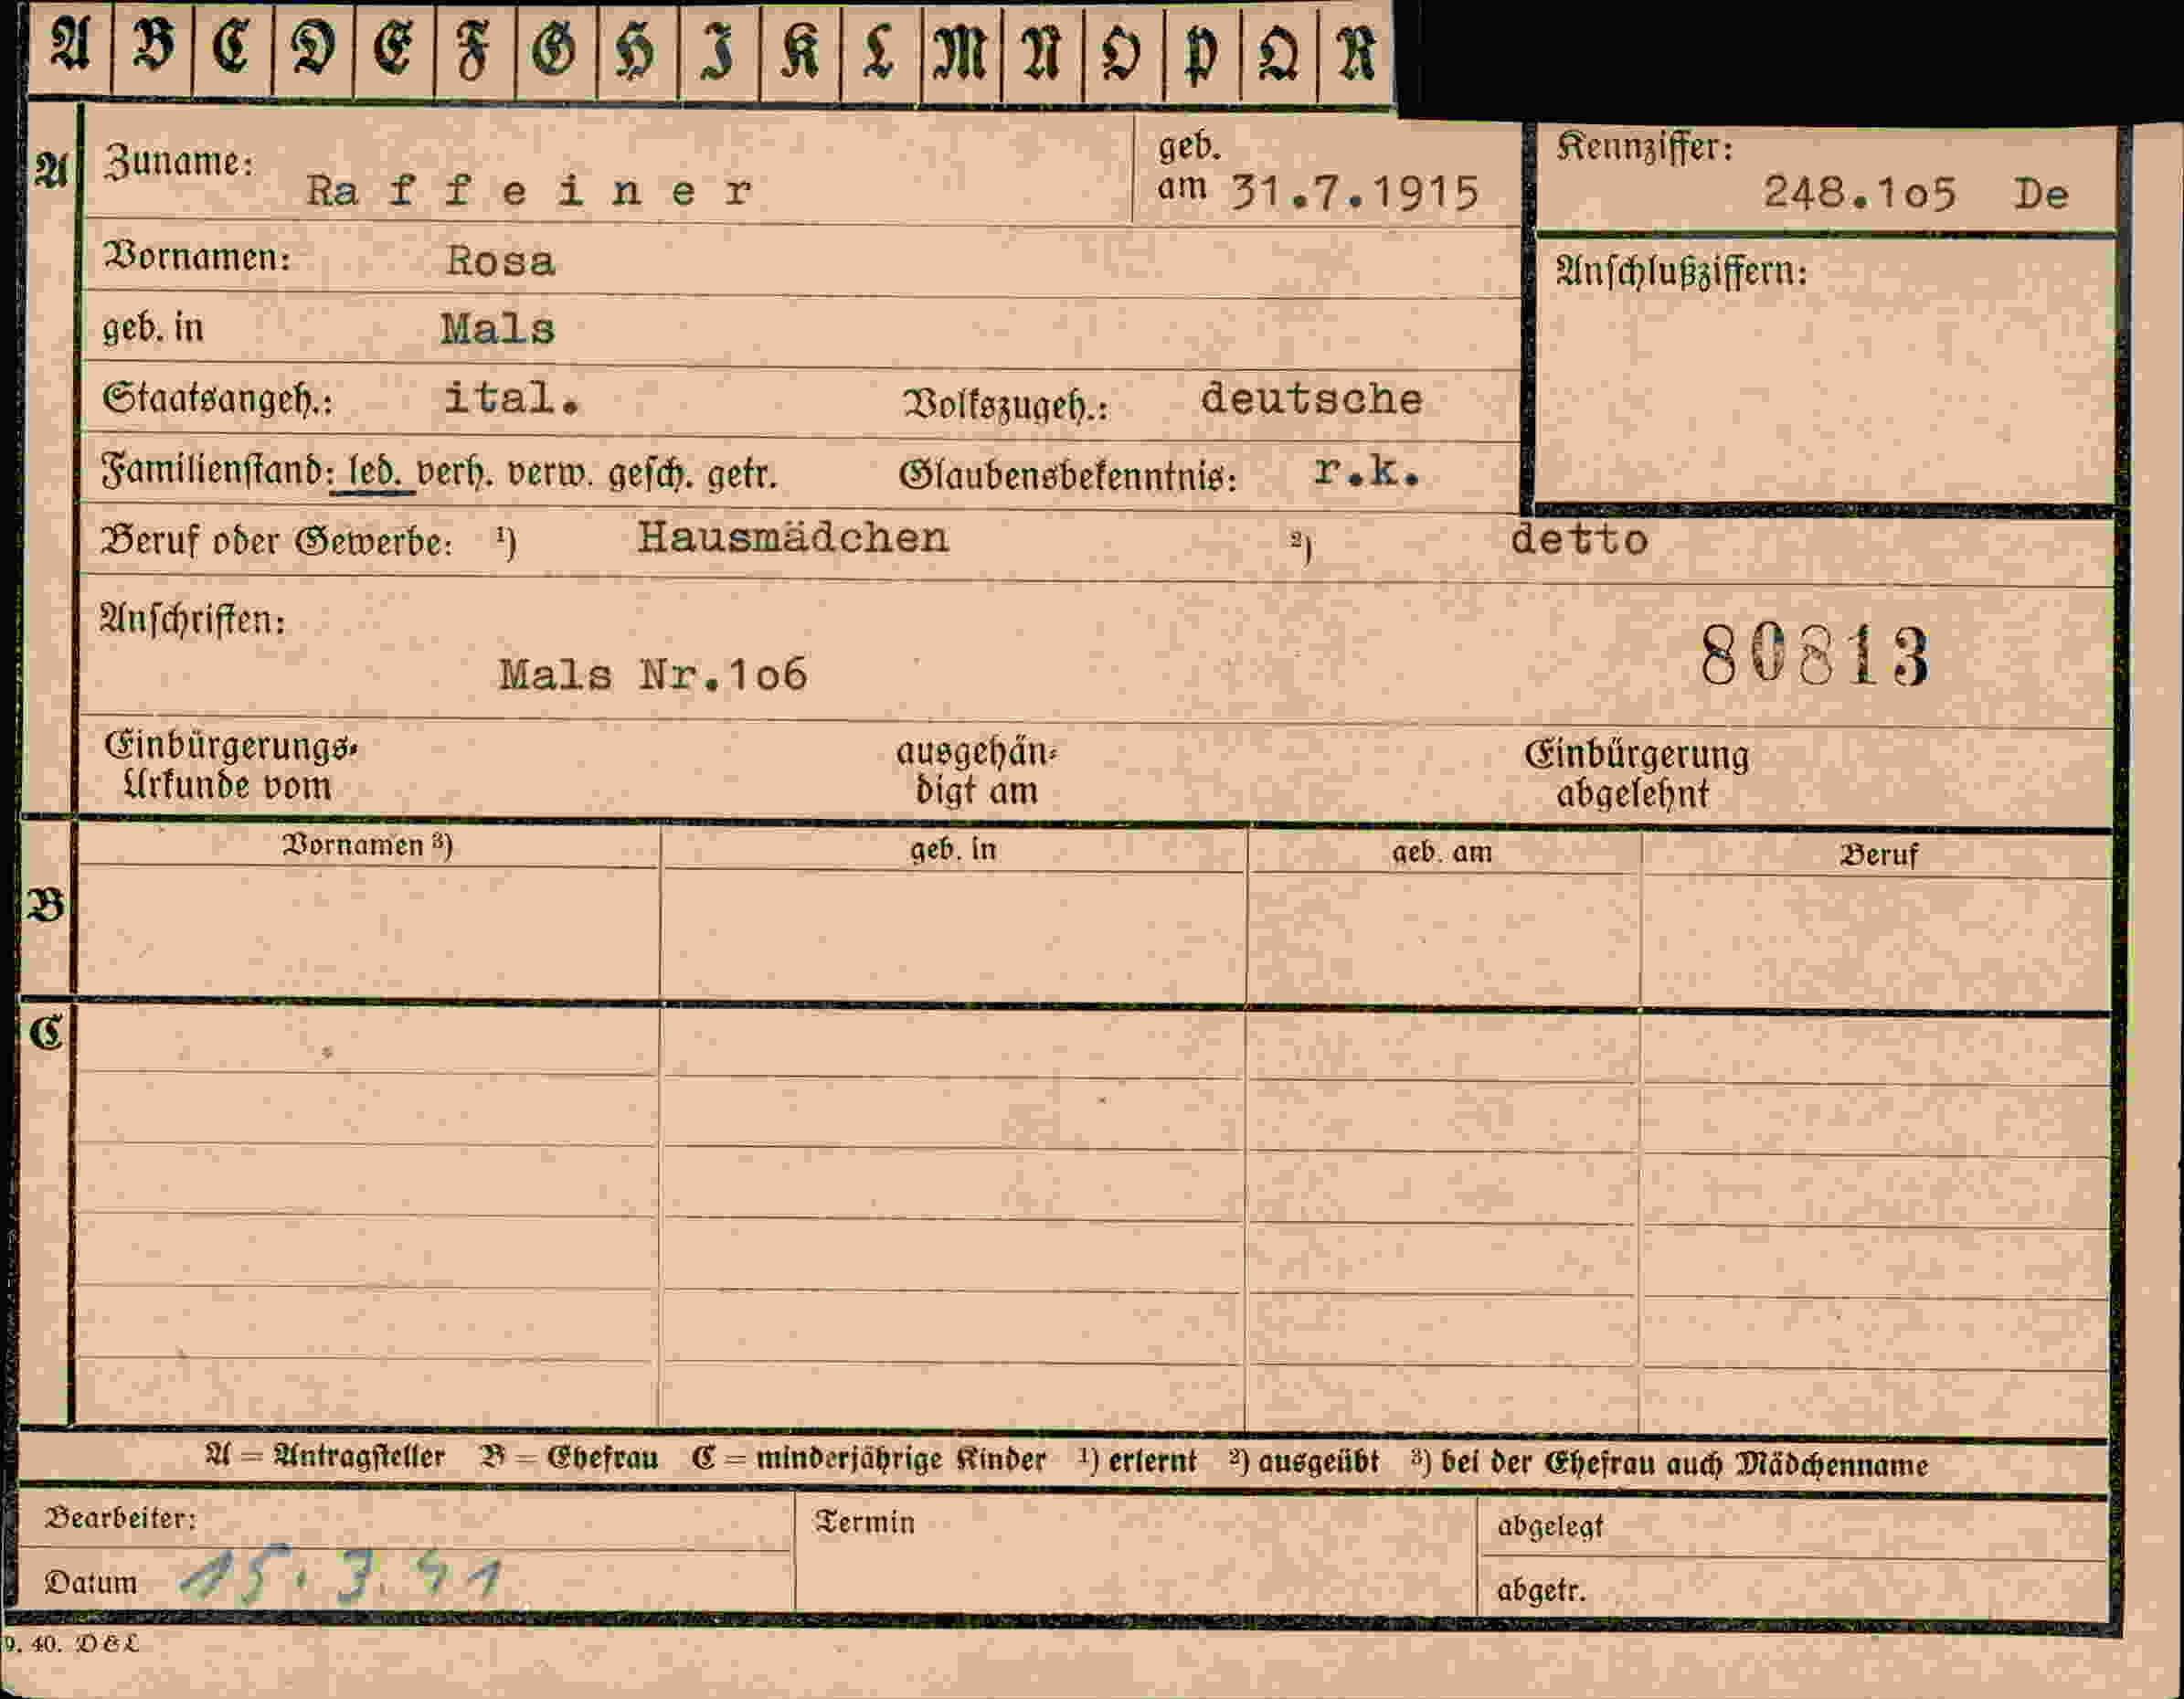 A B C D E F G H I K L M N O P Q R
A Zuname: Raffeiner geb. am 31.7.1915 Kennziffer: 248.1o5 De
Vornamen: Rosa Anschlußziffern:
geb. in Mals
Staatsangeh.: ital. Volkszugeh.: deutsche
Familienstand: led. verh. verw. gesch. getr. Glaubensbekenntnis: r.k.
Beruf oder Gewerbe: ¹) Hausmädchen ²) detto
Anschriften:
Mals Nr.1o6 80813
Einbürgerungs- ausgehän- Einbürgerung
Urkunde vom digt am abgelehnt
Vornamen ³) geb. in geb. am Beruf
B
C
A = Antragsteller B = Ehefrau C = minderjährige Kinder ¹) erlernt ²) ausgeübt ³) bei der Ehefrau auch Mädchenname
Bearbeiter: Termin abgelegt
Datum 15.3.41 abgetr.
9. 40. D&L